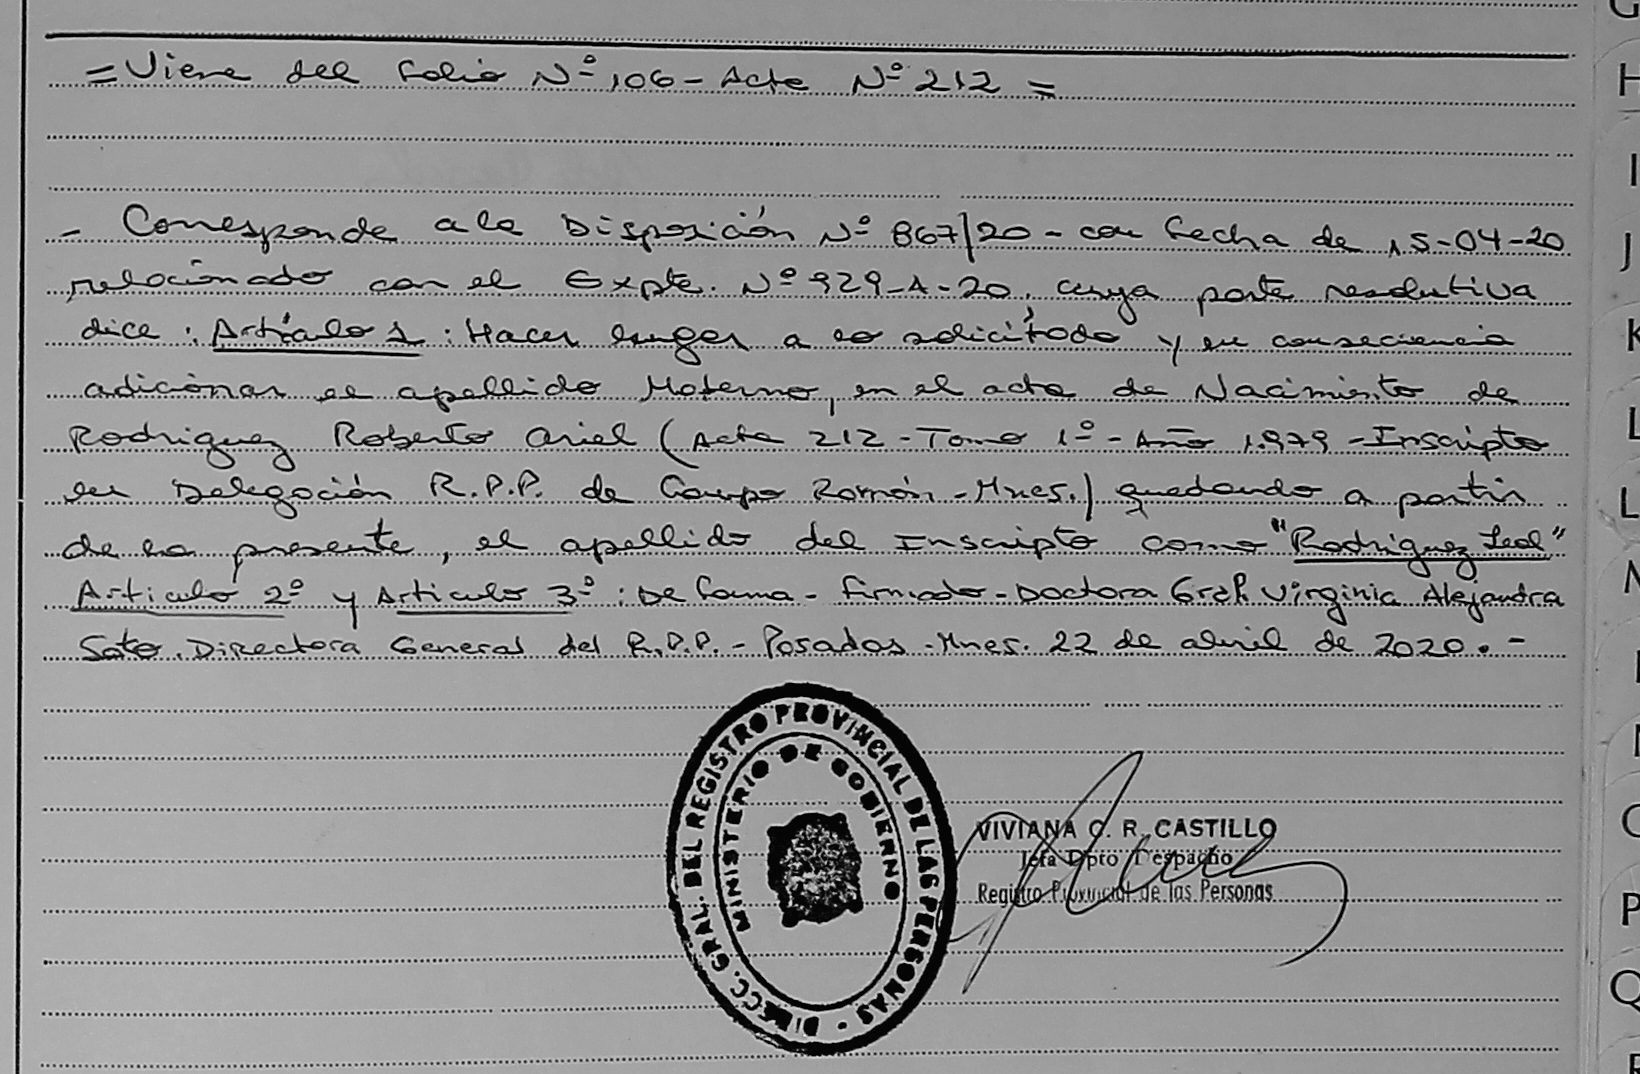 = Viene del Folio Nº 106 - Acta Nº 212 =
- Corresponde a la Disposición Nº 867/20 - con fecha de 15-04-20
relacionado con el Expte. Nº 929-A-20, cuya parte resolutiva
dice: Artículo 1: Hacer lugar a lo solicitado y en consecuencia
adicionar el apellido Materno, en el acta de Nacimiento de
Rodriguez Roberto Ariel (Acta 212 - Tomo 1º - Año 1.979 - Inscripto
en Delegación R.P.P. de Campo Ramón - Mnes.) quedando a partir
de la presente, el apellido del Inscripto como "Rodriguez Leal"
Articulo 2º y Articulo 3º: De forma - Firmado - Doctora Graf Virginia Alejandra
Soto. Directora General del R.P.P. - Posadas - Mnes. 22 de abril de 2020. -
DIRECC. GRAL. DEL REGISTRO PROVINCIAL DE LAS PERSONAS -
MINISTERIO DE GOBIERNO
VIVIANA C. R. CASTILLO
Jefa Dpto Despacho
Registro Provincial de las Personas
G
H
I
J
K
L
L
M
N
O
P
Q
R